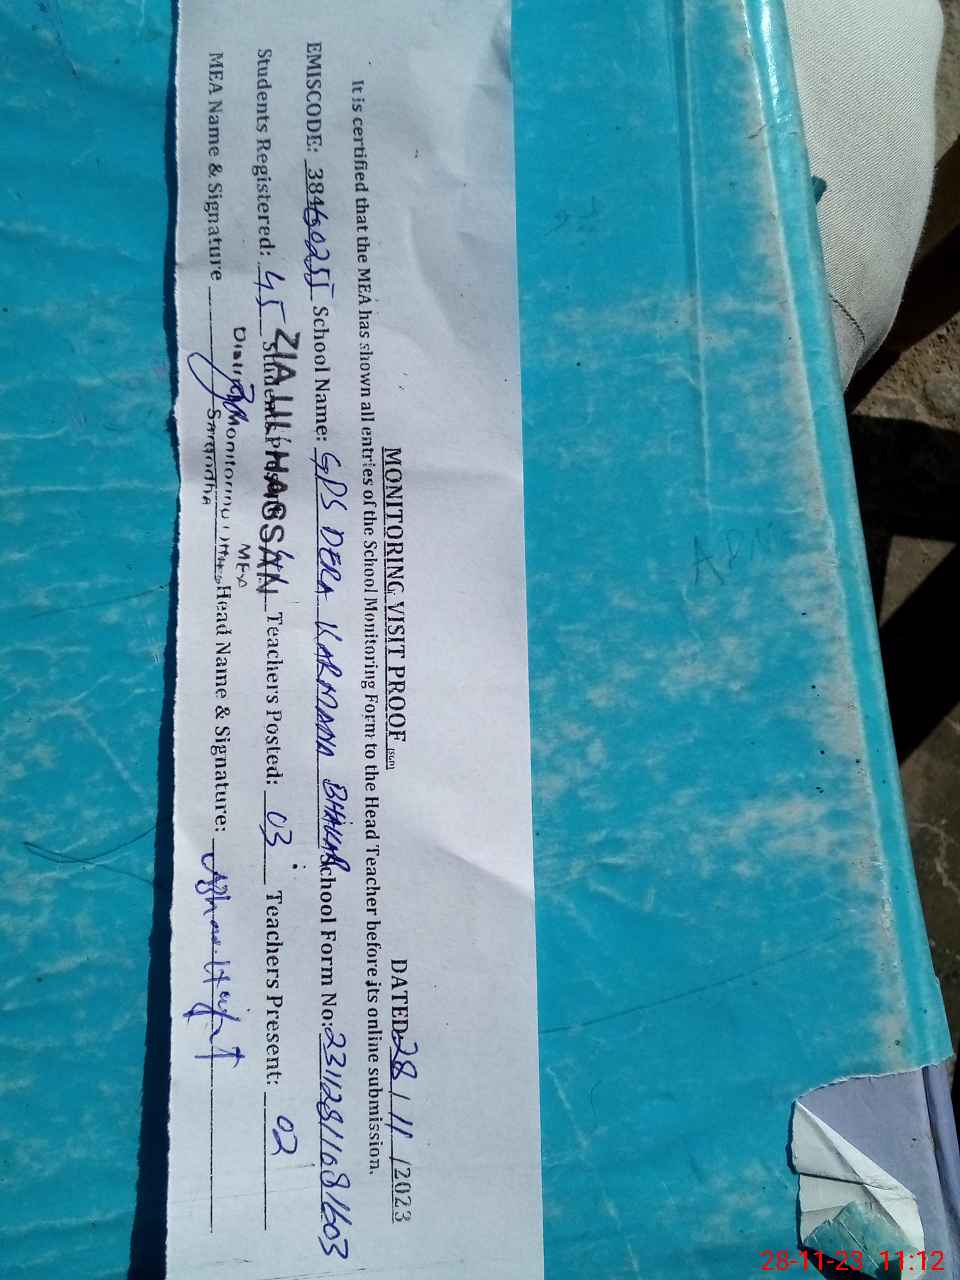 MONITORING VISIT PROOF (SGD) DATED: 28 / 11 / 2023
It is certified that the MEA has shown all entries of the School Monitoring Form to the Head Teacher before its online submission.
EMISCODE: 38460255 School Name: GPS DERA KARMANA School Form No: 23112811081603
Students Registered: 45 Students Present: Teachers Posted: 03 Teachers Present: 02
ZIA UL HASSAN
MEA
District Monitoring Officer
Sargodha
MEA Name & Signature Head Name & Signature:
28-11-23 11:12